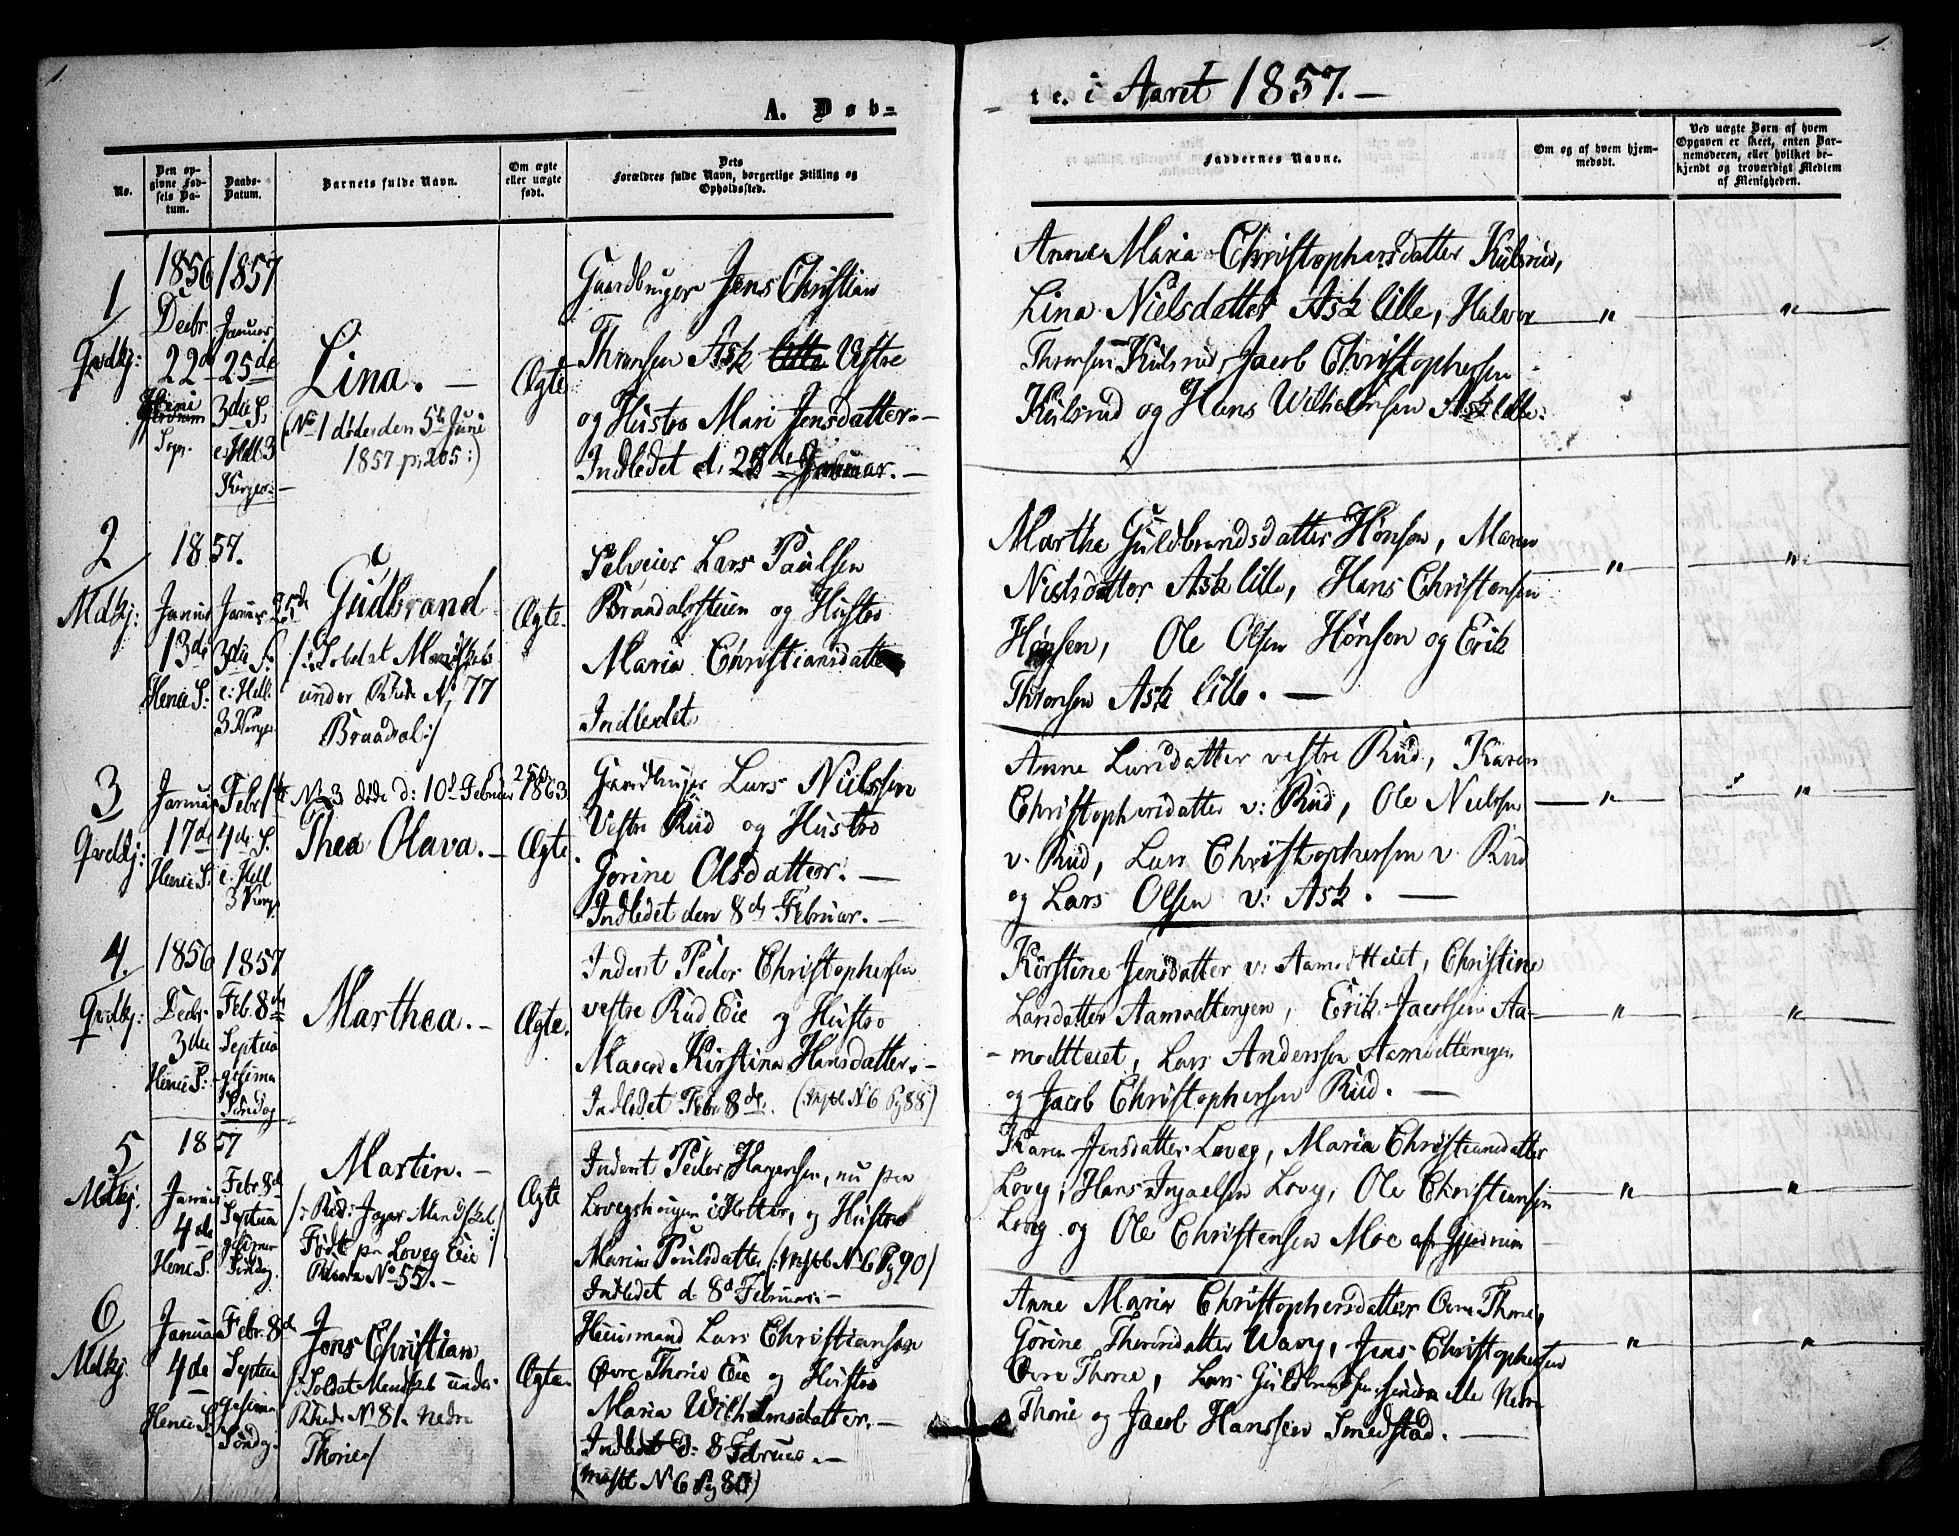 1
1.
A. Døb-
te. i Aaret 1857. —
No.
Den op-
givne Fød-
sels Da-
tum.
Daabs-
Datum.
Barnets fulde Navn.
Om ægte
eller uægte
født.
Dets
Forældres fulde Navn, borgerlige Stilling og
Opholdssted.
Faddernes Navne.
Om og af hvem hjem-
medøbt.
Ved uægte Børn af hvem
Opgaven er skeet, enten Bar-
nemoderen, eller hvilket be-
kjendt og troværdigt Medlem
af Menigheden.
1
Qvdkj:
1856
Decbr
22de
Sogn.
1857
Januar
25de
3die S.
e. Hell. 3
Konger. —
Lina. —
(No 1 døde den 5te Juni
1857 p: 205:)
Ægte
Jens Christian
Thronsen Ask Vestre
og Hustro Mari Jensdatter. —
Indledet d. 25de Januar. —
Anne Maria Christophersdatter Kulsrud,
Lina Nielsdatter Ask lille, Halvor
Thronsen Kulsrud, Jacob Christophersen
Kulsrud og Hans Wilhelmsen Ask lille.
" "
2
Mdkj:
1857.
Januar
13de
Henie S:
Januar 25de
3die S.
e: Hell.
3 Konger
Gudbrand
under Rhede No 77
Braadal:/
Ægte.
Selveier Lars Paulsen
Braadalsstuen og Hustro
Maria Christiansdatter
Indledet
Marthe Guldbrandsdatter Hønsen, Maren
Nielsdatter Ask lille, Hans Christensen
Hønsen, Ole Olsen Hønsen og Erik
Thronsen Ask lille. —
" "
3
Qvdkj:
Januar
17de
Henie S:
Febr. 1ste
4de S.
e: Hell
3 Kong.
No 3 døde d: 10de Februar 1863
Thea Olava. —
Ægte.
Lars Nielssen
Vestre Rud og Hustro
Gorine Olsdatter. —
Indledet den 8de Februar. —
Anne Larsdatter vestre Rud, Karen
Christophersdatter v: Rud, Ole Nielsen
v. Rud, Lars Christophersen v. Rud
og Lars Olsen v: Ask. —
" "
4.
Qvdkj:
1856
Decbr
3die
Henie S:
1857
Feb. 8de
Septua
gesima
Søndag
Marthea. —
Ægte.
Inderst Peder Christophersen
vestre Rud Eie og Hustro
Maren Kirstina Hansdatter. —
Indledet Febr 8de. ( No 6 Pg 88)
Kirstine Jensdatter v: Aamodteiet, Christine
Larsdatter Aamodtengen, Erik Jacobsen Aa-
modteiet, Lars Anderssen Aamodtengen
og Jacob Christophersen Rud. —
" "
5
Mdkj:
1857
Januar
4de
Henie S.
Febr. 8de
Septua
gesima
Søndag.
Martin. —
Født paa Loveg Eie
No 55. —
Ægte
Inderst Peder Hagensen, nu paa
og Hustro
Maria Poulsdatter No 6 Pg 90/
Indledet d. 8de Februar. —
Karen Jensdatter Loveg, Maria Christiansdatter
Loveg, Hans Loveg, Ole Christiansen
Loveg og Ole Christensen Moe af Gjerdrum
" "
6
Mdkj.
Januar
4de
Henie S.
Febr. 8de
Septua
gesima
Søndag.
Jens Christian
/:Soldat Mandskab under
Rhede No 81. Nedre
Thorie/
Ægte.
Huusmand Lars Christiansen
Øvre Thorie Eie og Hustro
Maria Wilhelmsdatter. —
Indledt d: 8 Februar. —
( No 6 Pg 80)
Anne Maria Christophersdatter Øvre Thorie,
Gorine Jens Christophersen
Øvre Thorie, Lars Guldbrandsen Nedre
Thorie og Jacob Hanssen Smedstad. —
" "